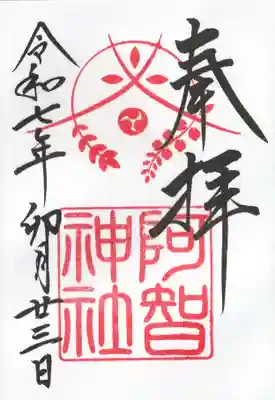 奉拝
阿智
神社
令和七年
卯月廿三日